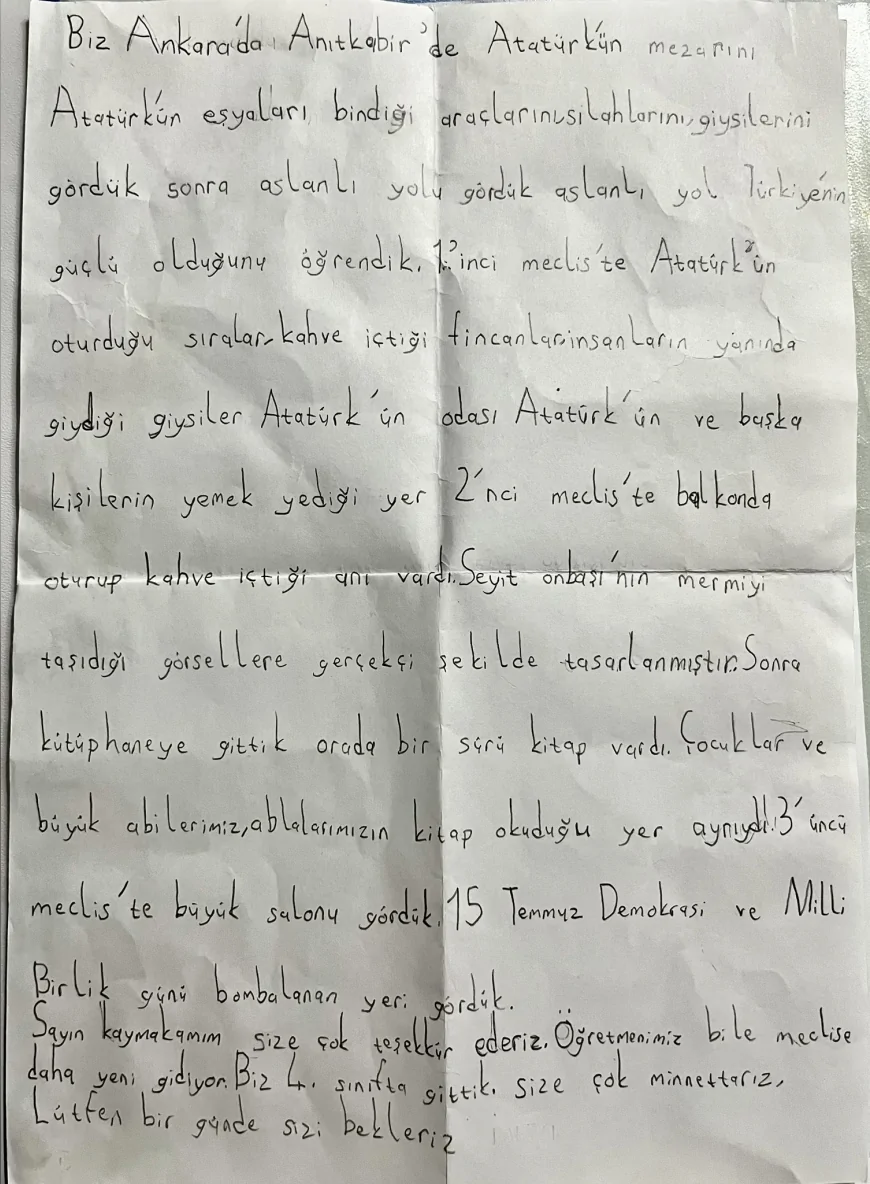 Biz Ankara'da Anıtkabir'de Atatürk'ün mezarını
Atatürk'ün eşyaları bindiği araçlarını,silahlarını,giysilerini
gördük sonra aslanlı yolu gördük aslanlı yol Türkiye'nin
güçlü olduğunu öğrendik. 1'inci meclis'te Atatürk'ün
oturduğu sıralar,kahve içtiği fincanlar,insanların yanında
giydiği giysiler Atatürk'ün odası Atatürk'ün ve başka
kişilerin yemek yediği yer 2'nci meclis'te balkonda
oturup kahve içtiği anı vardı.Seyit onbaşı'nın mermiyi
taşıdığı görsellere gerçekçi şekilde tasarlanmıştır.Sonra
kütüphaneye gittik orada bir sürü kitap vardı.Çocuklar ve
büyük abilerimiz,ablalarımızın kitap okuduğu yer aynıydı.3'üncü
meclis'te büyük salonu gördük.15 Temmuz Demokrasi ve Milli
Birlik günü bombalanan yeri gördük.
Sayın kaymakamım size çok teşekkür ederiz.Öğretmenimiz bile meclise
daha yeni gidiyor.Biz 4. sınıfta gittik. size çok minnettarız.
Lütfen bir günde sizi bekleriz